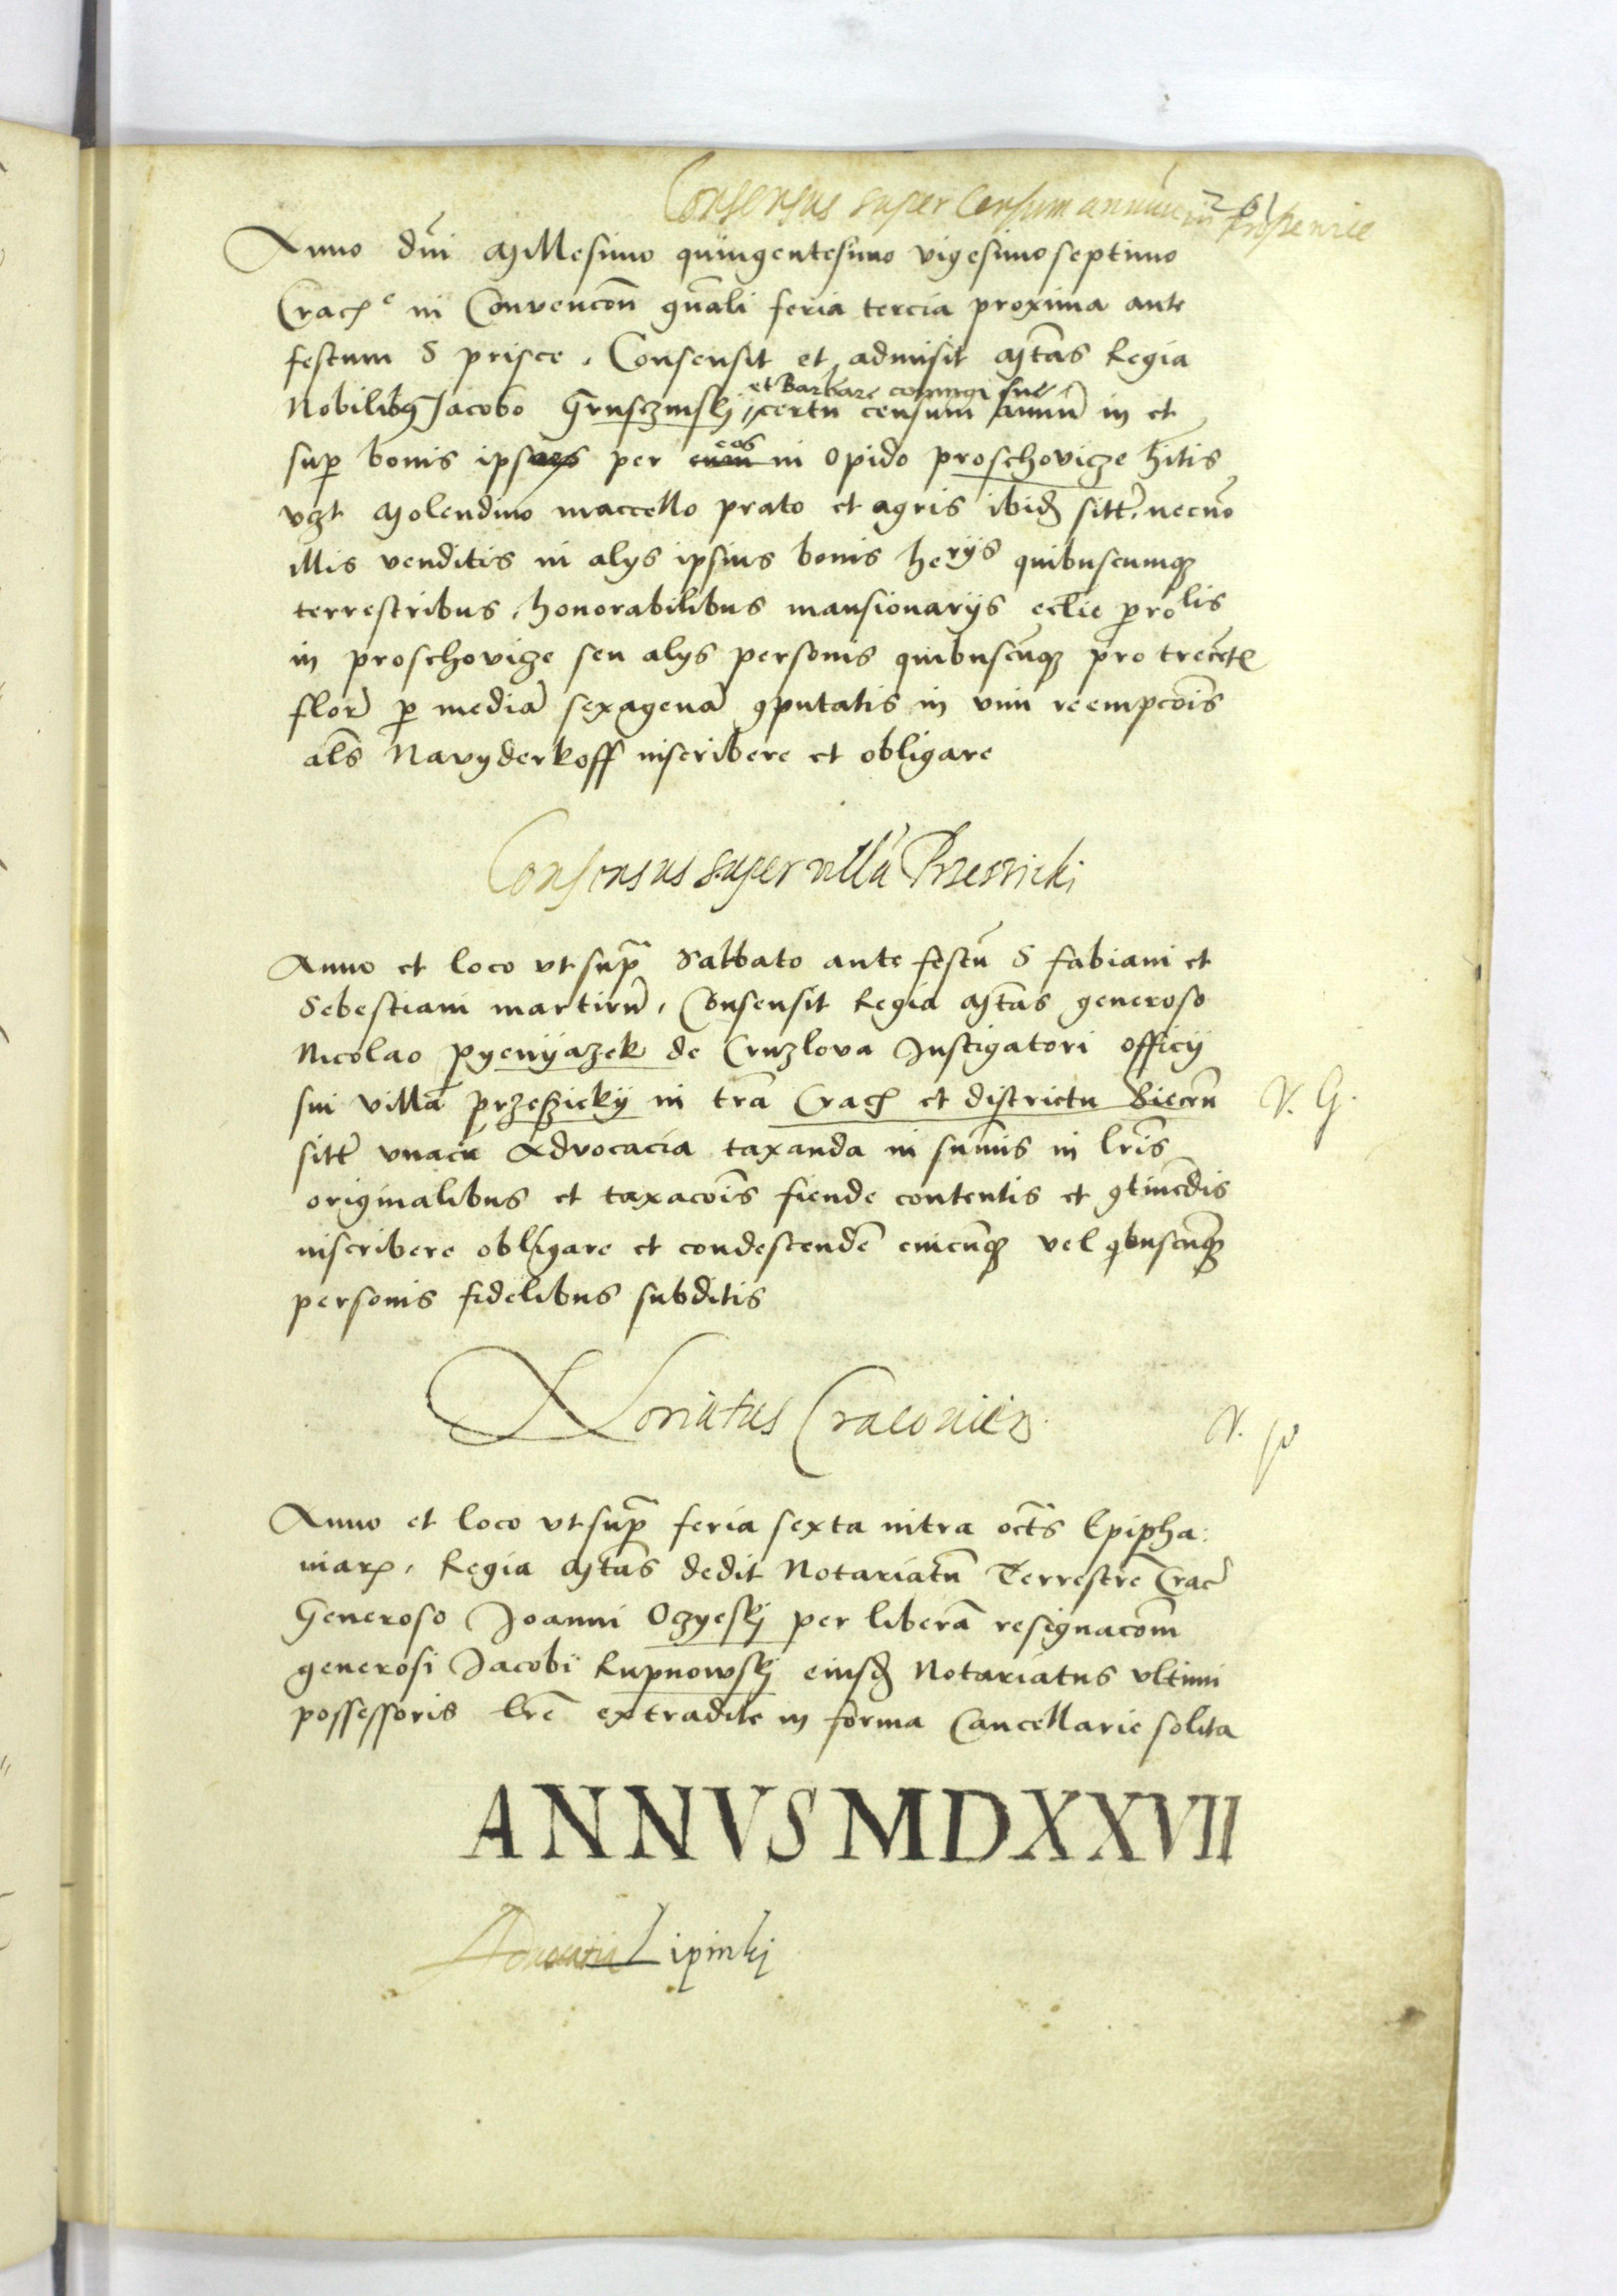 Consensus super Censum annuum in
261
Anno dni Millesimo quingentesimo vigesimoseptimo
Crac̄e in Convencōn gn̄ali feria tercia proxima ante
festum S prisce. Consensit et admisit Mtās Regia
et Barbare coniugi sue
Nobilibus Jacobo Gruszczinskj certū censum annuū in et
eos
sup bonis ipsorum per eum in opido proschovicze hītis
vczt Molendino maccello prato et agris ibid̄ sitt̄. necnō
illis venditis in alys ipsius bonis herijs quibuscumq
terrestribus, honorabilibus mansionarijs ecclie prolis
in proschovicze seu alys personis quibuscūq pro trecēt
flor̄ p mediā sexagenā 9putatis in vim reempcōis
als̄ Navyderkoff inscribere et obligare
Consensus super villā Przeszicki
Anno et loco vt sup̄ Sabbato ante festū S fabiani et
Sebestiani martirū, Consensit Regia Mtās generoso
Nicolao pyenyazek de Cruzlova Instigatori officij
sui villā przeszickij in trā Crac̄ et districtu Siecēn
V. G.
sitt̄ vnacū Advocacia taxanda in summis in lr̄is
originalibus et taxacōis fiende contentis et 9tinēdis
inscribere obligare et condescendē cuicūq vel qbuscūq
personis fidelibus subditis
Notariatus Cracovien
V.
Anno et loco vt sup̄ feria sexta intra oct̄s Epipha:
niar̄, Regia Mtās dedit Notariatū Terrestrē Crac̄
Generoso Joanni Oczyeskj per liberā resignacōm
generosi Jacobi Rupnowskj eiusd̄ Notariatus vltimi
possessoris lr̄e extradite in forma Cancellarie solita
ANNVS MDXXVII
Advocatia Lipinkj